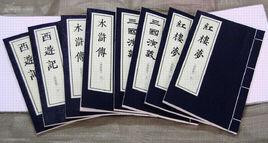 西遊記
西遊記
水滸傳
水滸傳
三國演義
三國演義
紅樓夢
紅樓夢